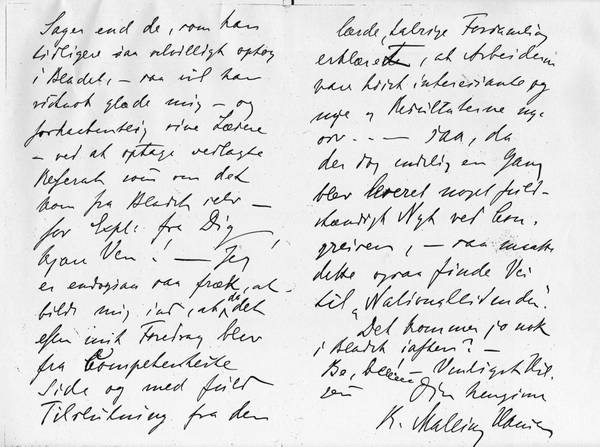 Sagen end de, som han
tidligere saa velvilligt optog
i Bladet, – saa vil han
vidnok glæde mig – og
forhaabentlig sine Læsere
– ved at optage vedlagte
Referat som om det
kom fra Bladet selv –
for Expl. fra Dig,
kjære Ven! – Jeg
er endogsaa saa fræk, at
bilde mig ind, at da det
efter mit Foredrag blev
fra Competenteste
Side og med fuld
Tilslutning fra den
lærde, talrige Forsamling
erklæret, at Arbeiderne
vare høist interessante og
nye og Resultaterne nye
osv. – – – saa, da
der dog endelig en Gang
blev leveret noget fuld-
stændigt Nyt ved Con-
gressen, – saa maatte
dette ogsaa finde Vei
til "Nationaltidende".
Det kommer jo nok
i Bladet iaften? –
Venligst Hil-
sen Din hengivne
R. Malling Hansen